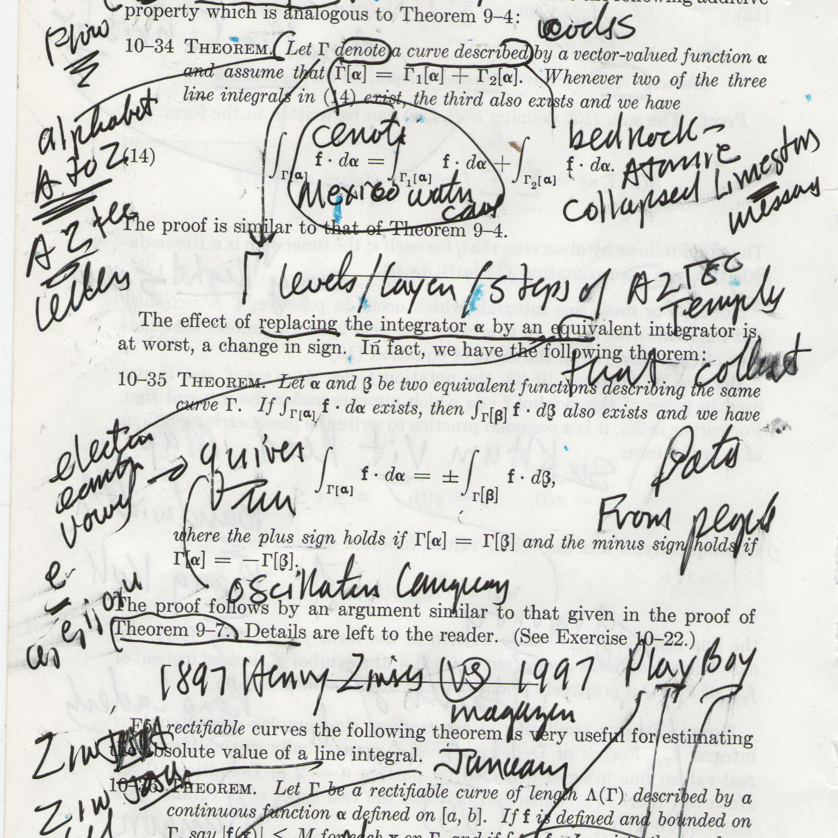 property which is analogous to Theorem 9–4:
words
plow
10–34 THEOREM. Let Γ denote a curve described by a vector-valued function α
and assume that Γ[α] = Γ₁[α] + Γ₂[α]. Whenever two of the three
line integrals in (14) exist, the third also exists and we have
alphabet
A to Z
cenote
bedrock-
Atomic
(14) ∫Γ[α] f · dα = ∫Γ₁[α] f · dα + ∫Γ₂[α] f · dα.
Mexico water
cave
Collapsed Limestone
message
The proof is similar to that of Theorem 9–4.
Aztec
letters
Γ levels/layer/steps of Aztec
Temple
The effect of replacing the integrator α by an equivalent integrator is,
at worst, a change in sign. In fact, we have the following theorem:
that collect
10–35 THEOREM. Let α and β be two equivalent functions describing the same
curve Γ. If ∫Γ[α] f · dα exists, then ∫Γ[β] f · dβ also exists and we have
electron
vowel
quiver
Data
∫Γ[α] f · dα = ±∫Γ[β] f · dβ,
From people
where the plus sign holds if Γ[α] = Γ[β] and the minus sign holds if
Γ[α] = −Γ[β].
e-
oscillates language
The proof follows by an argument similar to that given in the proof of
Theorem 9–7. Details are left to the reader. (See Exercise 10–22.)
1897 Henry VS 1997 PlayBoy
magazen
For rectifiable curves the following theorem is very useful for estimating
the absolute value of a line integral.
January
10–36 THEOREM. Let Γ be a rectifiable curve of length Λ(Γ) described by a
continuous function α defined on [a, b]. If f is defined and bounded on
Γ, say |f(x)| ≤ M for each x on Γ, and if f